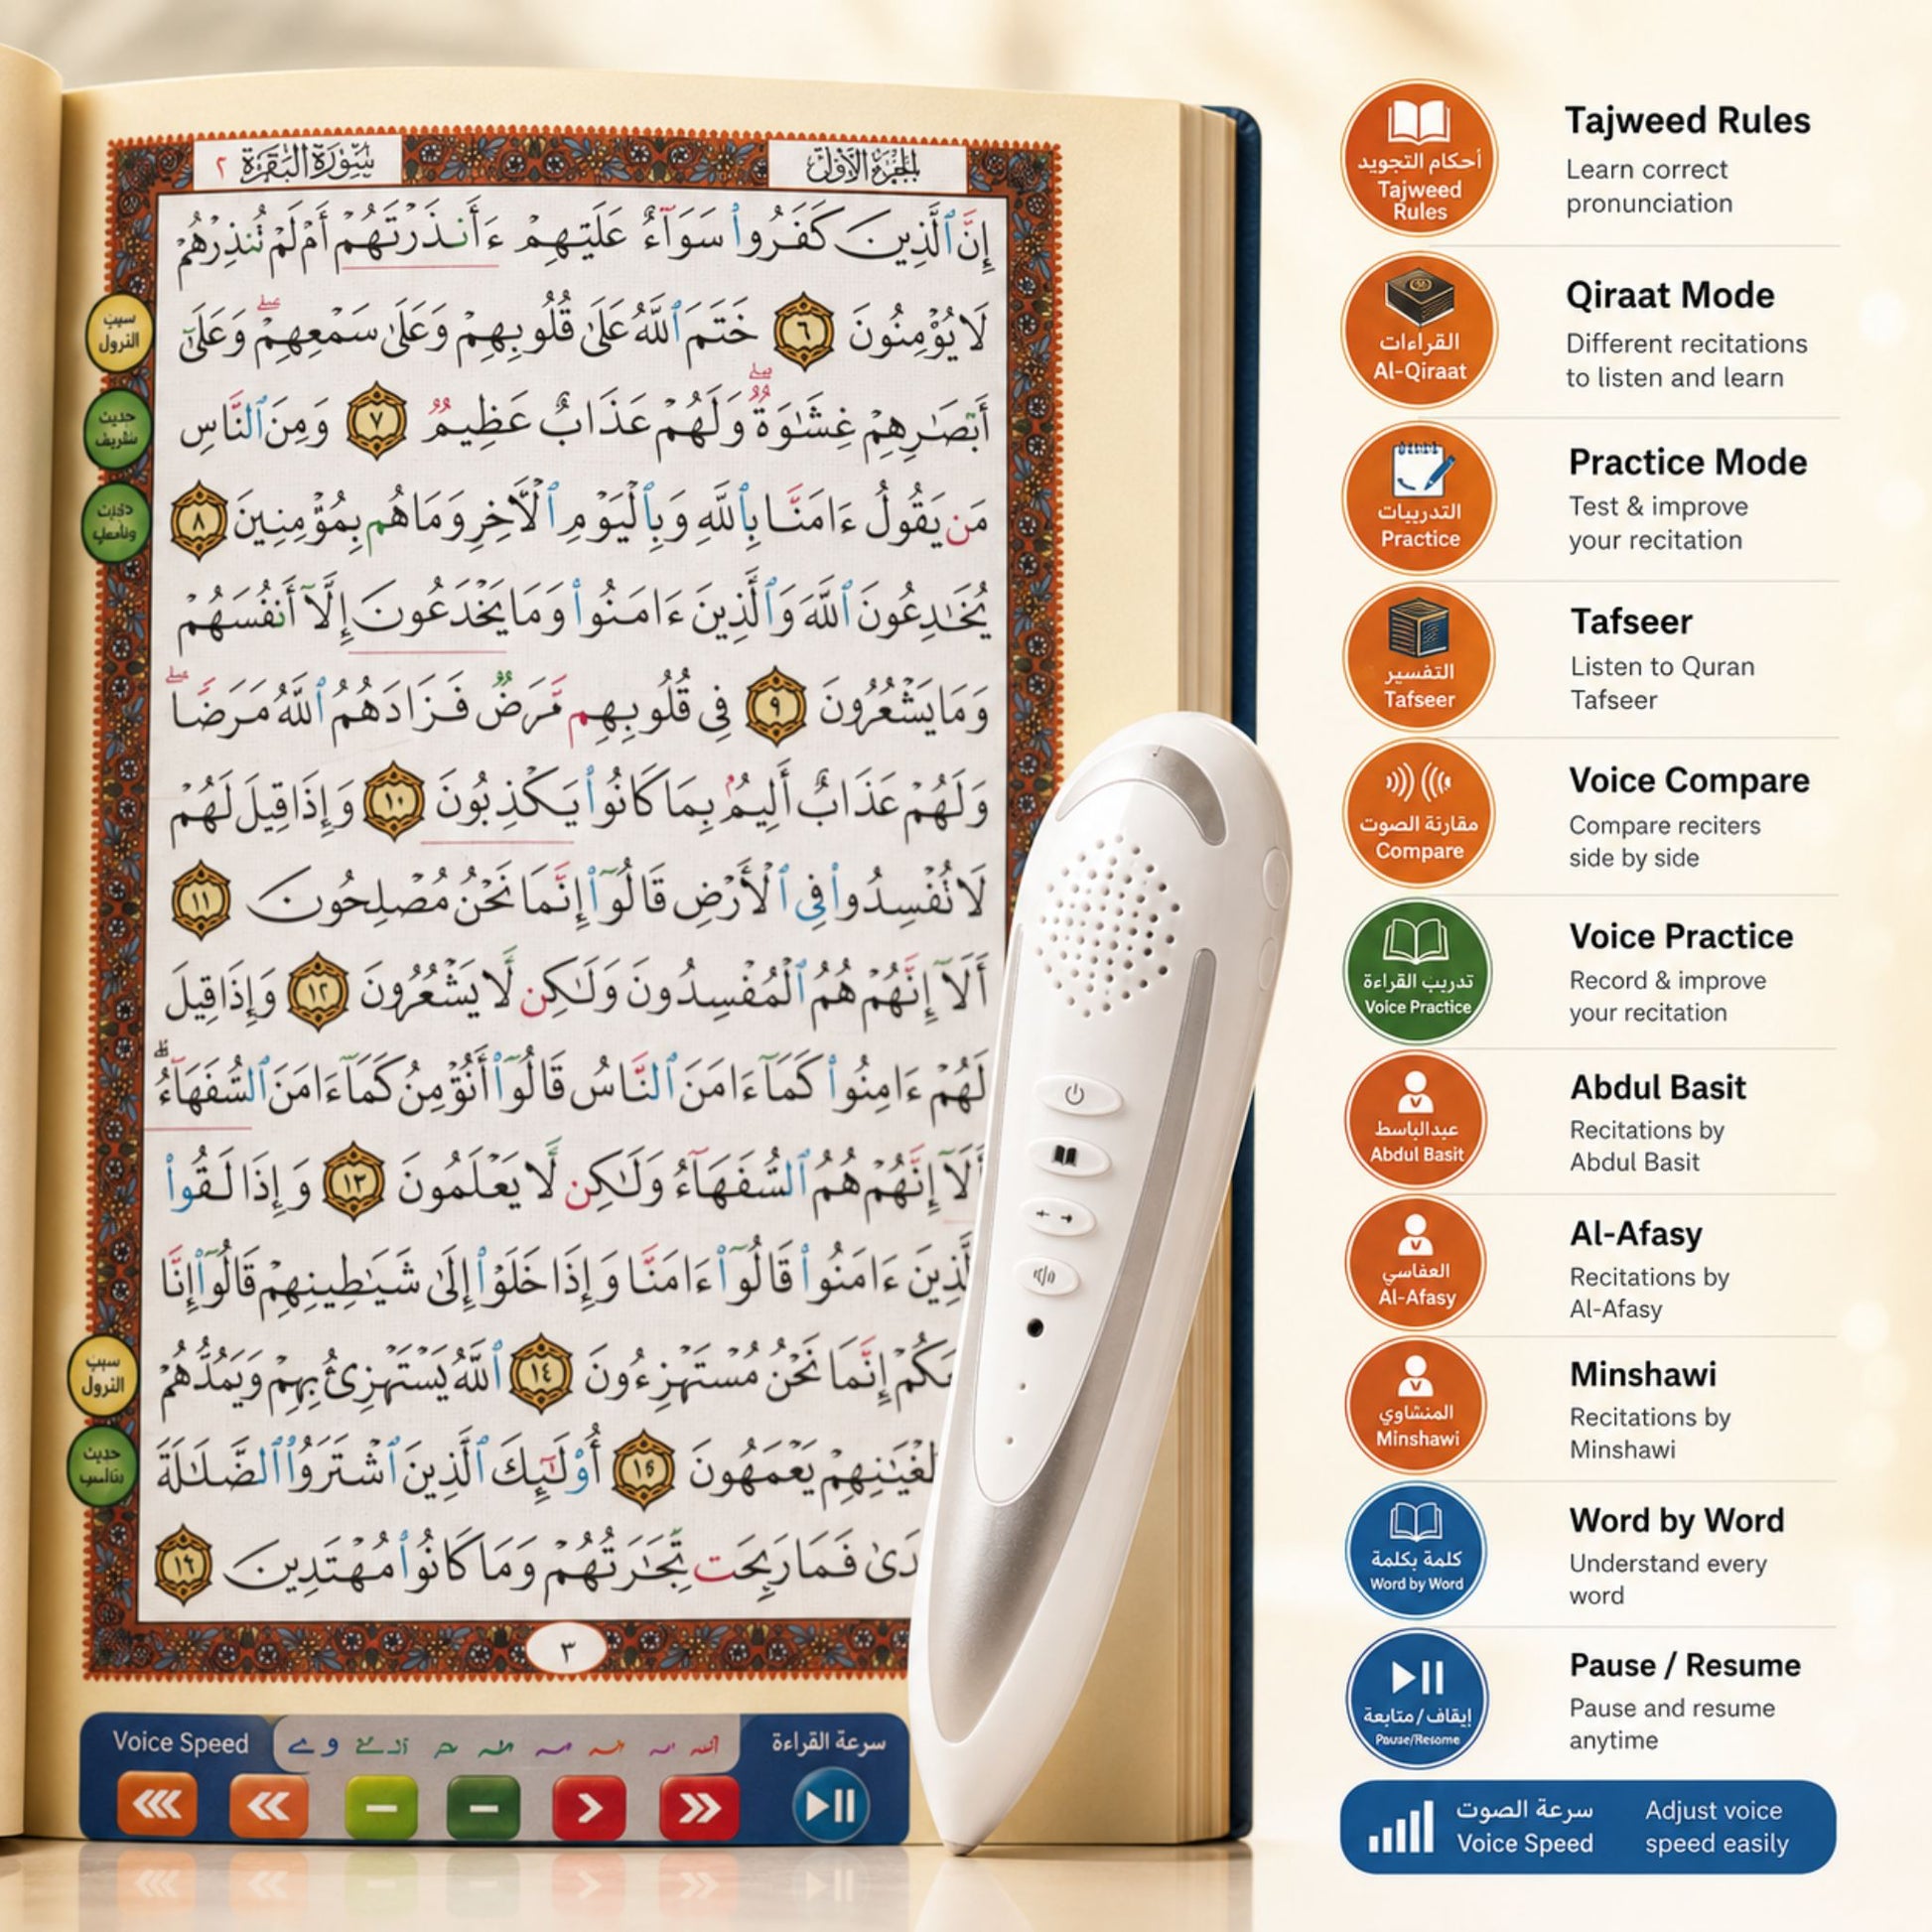 سُورَةُ البَقَرَةِ ٢
الجُزْءُ الأَوَّلُ
إِنَّ ٱلَّذِينَ كَفَرُوا۟ سَوَآءٌ عَلَيْهِمْ ءَأَنذَرْتَهُمْ أَمْ لَمْ تُنذِرْهُمْ
لَا يُؤْمِنُونَ ٦ خَتَمَ ٱللَّهُ عَلَىٰ قُلُوبِهِمْ وَعَلَىٰ سَمْعِهِمْ ۖ وَعَلَىٰٓ
أَبْصَـٰرِهِمْ غِشَـٰوَةٌ ۖ وَلَهُمْ عَذَابٌ عَظِيمٌ ٧ وَمِنَ ٱلنَّاسِ
مَن يَقُولُ ءَامَنَّا بِٱللَّهِ وَبِٱلْيَوْمِ ٱلْـَٔاخِرِ وَمَا هُم بِمُؤْمِنِينَ ٨
يُخَـٰدِعُونَ ٱللَّهَ وَٱلَّذِينَ ءَامَنُوا۟ وَمَا يَخْدَعُونَ إِلَّآ أَنفُسَهُمْ
وَمَا يَشْعُرُونَ ٩ فِى قُلُوبِهِم مَّرَضٌ فَزَادَهُمُ ٱللَّهُ مَرَضًا ۖ
وَلَهُمْ عَذَابٌ أَلِيمٌۢ بِمَا كَانُوا۟ يَكْذِبُونَ ١٠ وَإِذَا قِيلَ لَهُمْ
لَا تُفْسِدُوا۟ فِى ٱلْأَرْضِ قَالُوٓا۟ إِنَّمَا نَحْنُ مُصْلِحُونَ ١١
أَلَآ إِنَّهُمْ هُمُ ٱلْمُفْسِدُونَ وَلَـٰكِن لَّا يَشْعُرُونَ ١٢ وَإِذَا قِيلَ
لَهُمْ ءَامِنُوا۟ كَمَآ ءَامَنَ ٱلنَّاسُ قَالُوٓا۟ أَنُؤْمِنُ كَمَآ ءَامَنَ ٱلسُّفَهَآءُ ۗ
أَلَآ إِنَّهُمْ هُمُ ٱلسُّفَهَآءُ وَلَـٰكِن لَّا يَعْلَمُونَ ١٣ وَإِذَا لَقُوا۟
ٱلَّذِينَ ءَامَنُوا۟ قَالُوٓا۟ ءَامَنَّا وَإِذَا خَلَوْا۟ إِلَىٰ شَيَـٰطِينِهِمْ قَالُوٓا۟ إِنَّا
إِنَّمَا نَحْنُ مُسْتَهْزِءُونَ ١٤ ٱللَّهُ يَسْتَهْزِئُ بِهِمْ وَيَمُدُّهُمْ
يَعْمَهُونَ ١٥ أُو۟لَـٰٓئِكَ ٱلَّذِينَ ٱشْتَرَوُا۟ ٱلضَّلَـٰلَةَ
فَمَا رَبِحَت تِّجَـٰرَتُهُمْ وَمَا كَانُوا۟ مُهْتَدِينَ ١٦
٣
سبب
النزول
حديث
شريف
سبب
النزول
حديث
Voice Speed
سرعة القراءة
أحكام التجويد
Tajweed
Rules
Tajweed Rules
Learn correct
pronunciation
القراءات
Al-Qiraat
Qiraat Mode
Different recitations
to listen and learn
التدريبات
Practice
Practice Mode
Test & improve
your recitation
التفسير
Tafseer
Tafseer
Listen to Quran
Tafseer
مقارنة الصوت
Compare
Voice Compare
Compare reciters
side by side
تدريب القراءة
Voice Practice
Voice Practice
Record & improve
your recitation
عبدالباسط
Abdul Basit
Abdul Basit
Recitations by
Abdul Basit
العفاسي
Al-Afasy
Al-Afasy
Recitations by
Al-Afasy
المنشاوي
Minshawi
Minshawi
Recitations by
Minshawi
كلمة بكلمة
Word by Word
Word by Word
Understand every
word
إيقاف / متابعة
Pause/Resome
Pause / Resume
Pause and resume
anytime
سرعة الصوت
Voice Speed
Adjust voice
speed easily